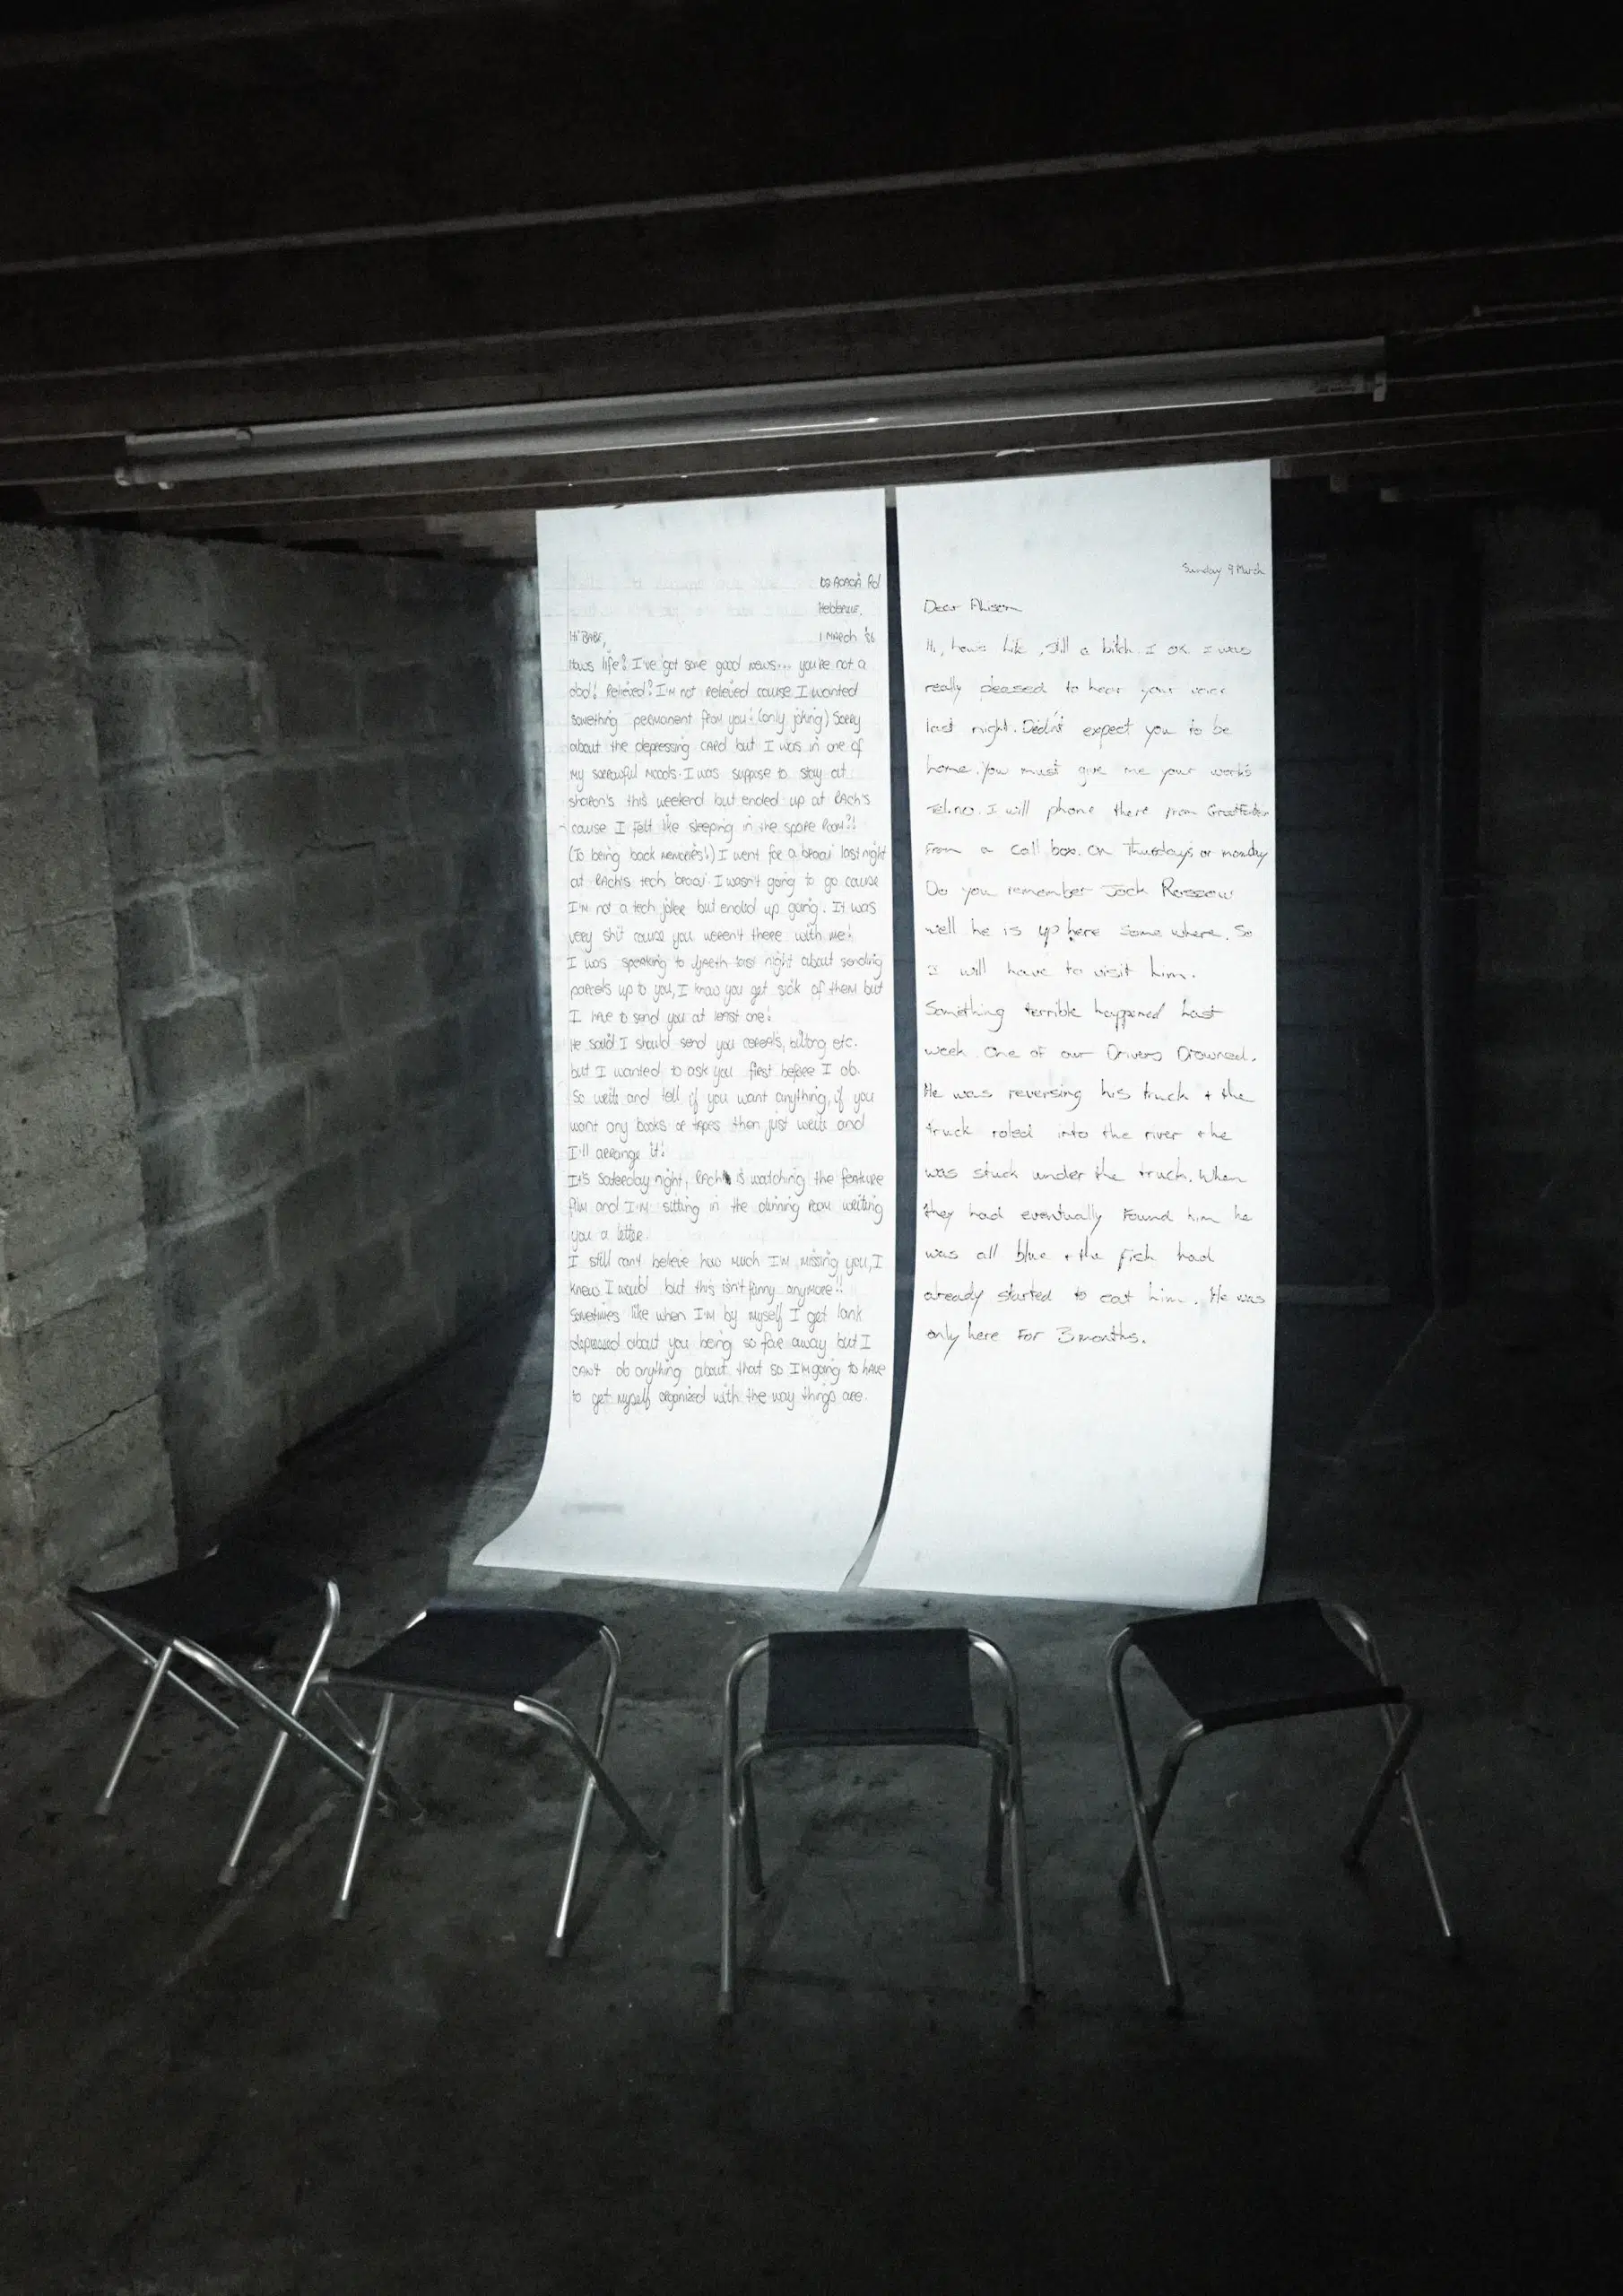 Acacia Rd
1 March '86
Hi BABE,
Hows life? I've got some good news... you're not a
dad! Relieved? I'm not relieved cause I wanted
something permanent from you! (only joking) Sorry
about the depressing card but I was in one of
my sorrowful moods. I was suppose to stay at
sharon's this weekend but ended up at RAch's
cause I felt like sleeping in the spare Room?!
(To bring back memories!) I went for a braai last night
at RAch's tech braai. I wasn't going to go cause
I'm not a tech joller but ended up going. It was
very shit cause you weren't there with me!
I was speaking to last night about sending
parcels up to you, I know you get sick of them but
I have to send you at least one!
He said I should send you cereals, biltong etc.
but I wanted to ask you first before I do.
So write and tell if you want anything, if you
want any books or tapes then just write and
I'll arrange it!
It's Saterday night, RAch is watching the feature
film and I'm sitting in the dinning room writing
you a letter.
I still can't believe how much I'm missing you, I
knew I would but this isn't funny anymore!!
Sometimes like when I'm by myself I get lank
depressed about you being so far away but I
can't do anything about that so I'm going to have
to get myself organized with the way things are.
Sunday 9 March
Dear Alison
Hi, hows life, still a bitch. I ok. I was
really pleased to hear your voice
last night. Didn't expect you to be
home. You must give me your work's
Tel.no. I will phone there from Grootfontein
From a call box. On Thursdays or monday
Do you remember Jock Rossouw
well he is up here some where. So
I will have to visit him.
Something terrible happened last
week. One of our Drivers Drowned.
He was reversing his truck + the
truck roled into the river + he
was stuck under the truck. When
they had eventually found him he
was all blue + the fish had
already started to eat him. He was
only here For 3 months.